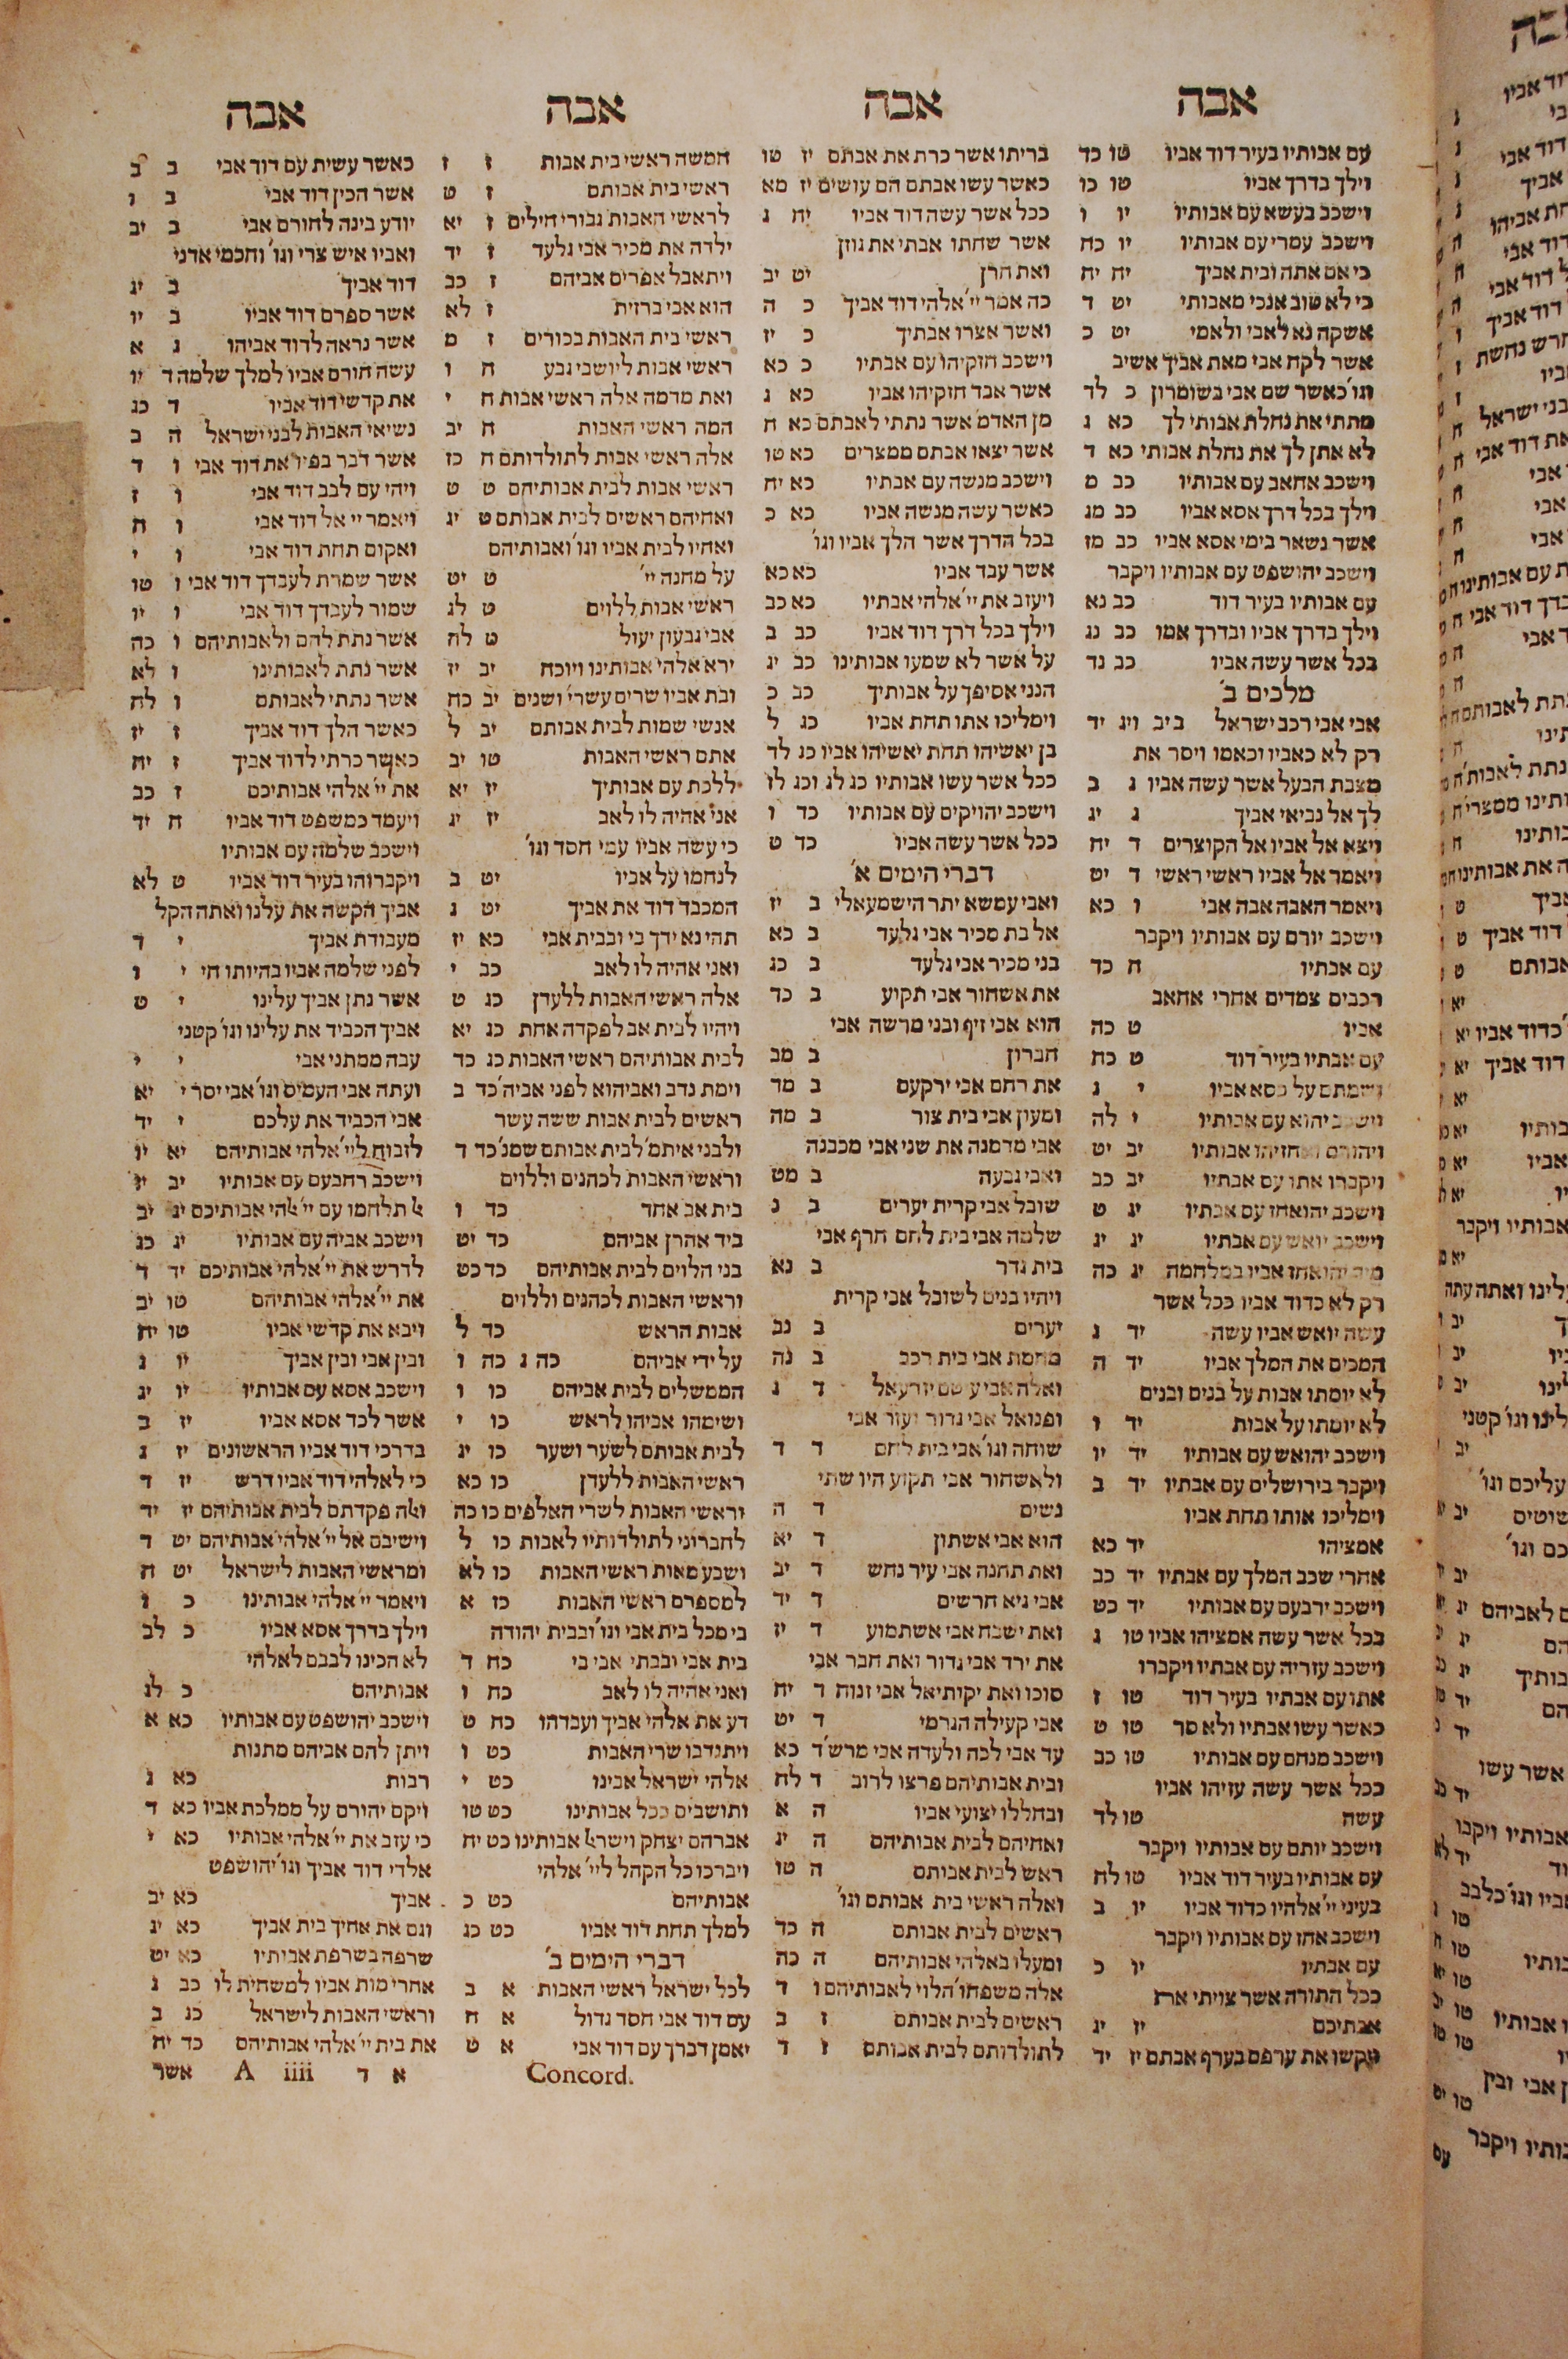 אבה
עם אבותיו בעיר דוד אביו טו כד
וילך בדרך אביו טו כו
וישכב בעשא עם אבותיו יו ו
וישכב עמרי עם אבותיו יו כח
כי אם אתה ובית אביך יח יח
כי לא טוב אנכי מאבותי יט ד
אשקה נא לאבי ולאמי יט כ
אשר לקח אבי מאת אביך אשיב
וגו׳ כאשר שם אבי בשומרון כ לד
מתתי את נחלת אבותי לך כא ג
לא אתן לך את נחלת אבותי כא ד
וישכב אחאב עם אבותיו כב מ
וילך בכל דרך אסא אביו כב מג
אשר נשאר בימי אסא אביו כב מז
וישכב יהושפט עם אבותיו ויקבר
עם אבותיו בעיר דוד כב נא
וילך בדרך אביו ובדרך אמו כב נג
בכל אשר עשה אביו כב נד
מלכים ב׳
אבי אבי רכב ישראל ב יב ויג יד
רק לא כאביו וכאמו ויסר את
מצבת הבעל אשר עשה אביו ג ב
לך אל נביאי אביך ג יג
ויצא אל אביו אל הקוצרים ד יח
ויאמר אל אביו ראשי ראשי ד יט
ויאמר האבה אבה אבי ו כא
וישכב יורם עם אבותיו ויקבר
עם אבתיו ח כד
רכבים צמדים אחרי אחאב
אביו ט כה
עם אבתיו בעיר דוד ט כח
ושמתם על כסא אביו י ג
וישכב יהוא עם אבותיו י לה
ויהורם ואחזיהו אבותיו יב יט
ויקברו אתו עם אבתיו יב כב
וישכב יהואחז עם אבתיו יג ט
וישכב יואש עם אבתיו יג יג
מיד יהואחז אביו במלחמה יג כה
רק לא כדוד אביו ככל אשר
עשה יואש אביו עשה יד ג
המכים את המלך אביו יד ה
לא יומתו אבות על בנים ובנים
לא יומתו על אבות יד ו
וישכב יהואש עם אבותיו יד יו
ויקבר בירושלים עם אבתיו יד ב
וימליכו אותו תחת אביו
אמציהו יד כא
אחרי שכב המלך עם אבתיו יד כב
וישכב ירבעם עם אבותיו יד כט
בכל אשר עשה אמציהו אביו טו ג
וישכב עזריה עם אבתיו ויקברו
אתו עם אבתיו בעיר דוד טו ז
כאשר עשו אבתיו ולא סר טו ט
וישכב מנחם עם אבותיו טו כב
ככל אשר עשה עזיהו אביו
עשה טו לד
וישכב יותם עם אבותיו ויקבר
עם אבותיו בעיר דוד אביו טו לח
בעיני יי׳ אלהיו כדוד אביו יו ב
וישכב אחז עם אבותיו ויקבר
עם אבתיו יו כ
ככל התורה אשר צויתי את
אבתיכם יז יג
ויקשו את ערפם כערף אבתם יז יד
אבה
בריתו אשר כרת את אבתם יז טו
כאשר עשו אבתם הם עושים יז מא
ככל אשר עשה דוד אביו יח ג
אשר שחתו אבתי את גוזן
ואת חרן יט יב
כה אמר יי׳ אלהי דוד אביך כ ה
ואשר אצרו אבתיך כ יז
וישכב חזקיהו עם אבתיו כ כא
אשר אבד חזקיהו אביו כא ג
מן האדמ׳ אשר נתתי לאבתם כא ח
אשר יצאו אבתם ממצרים כא טו
וישכב מנשה עם אבתיו כא יח
כאשר עשה מנשה אביו כא כ
בכל הדרך אשר הלך אביו וגו׳
אשר עבד אביו כא כא
ויעזב את יי׳ אלהי אבתיו כא כב
וילך בכל דרך דוד אביו כב ב
על אשר לא שמעו אבותינו כב יג
הנני אסיפך על אבותיך כב כ
וימליכו אתו תחת אביו כג ל
בן יאשיהו תחת יאשיהו אביו כג לד
ככל אשר עשו אבותיו כג לג וכג לז
וישכב יהויקים עם אבותיו כד ו
ככל אשר עשה אביו כד ט
דברי הימים א׳
ואבי עמשא יתר הישמעאלי ב יז
אל בת מכיר אבי גלעד ב כא
בני מכיר אבי גלעד ב כג
את אשחור אבי תקוע ב כד
הוא אבי זיף ובני מרשה אבי
חברון ב מב
את רחם אבי ירקעם ב מד
ומעון אבי בית צור ב מה
אבי מדמנה את שוא אבי מכבנה
ואבי גבעה ב מט
שובל אבי קרית יערים ב נ
שלמה אבי בית לחם חרף אבי
בית גדר ב נא
ויהיו בנים לשובל אבי קרית
יערים ב נב
מחמת אבי בית רכב ב נה
ואלה אבי עיטם יזרעאל ד ג
ופנואל אבי גדור ועזר אבי
שוחה וגו׳ אבי בית לחם ד ד
ולאשחור אבי תקוע היו שתי
נשים ד ה
הוא אבי אשתון ד יא
ואת תחנה אבי עיר נחש ד יב
אבי גיא חרשים ד יד
ואת ישבח אבי אשתמוע ד יז
את ירד אבי גדור ואת חבר אבי
סוכו ואת יקותיאל אבי זנוח ד יח
אבי קעילה הגרמי ד יט
עד אבי לכה ולעדה אבי מרש׳ ד כא
ובית אבותיהם פרצו לרוב ד לח
ובחללו יצועי אביו ה א
ואחיהם לבית אבותיהם ה יג
ראש לבית אבותם ה טו
ואלה ראשי בית אבותם וגו׳
ראשים לבית אבותם ה כד
ומעלו באלהי אבותיהם ה כה
אלה משפחו׳ הלוי לאבותיהם ו ד
ראשים לבית אבותם ז ב
לתולדותם לבית אבותם ז ד
אבה
חמשה ראשי בית אבות ז ז
ראשי בית אבותם ז ט
לראשי האבות גבורי חילים ז יא
ילדה את מכיר אבי גלעד ז יד
ויתאבל אפרים אביהם ז כב
הוא אבי ברזית ז לא
ראשי בית האבות בכורים ז מ
ראשי אבות ליושבי גבע ח ו
ואת מרמה אלה ראשי אבות ח י
המה ראשי האבות ח יב
אלה ראשי אבות לתולדותם ח כז
ראשי אבות לבית אבותיהם ט ט
ואחיהם ראשים לבית אבותם ט יג
ואחיו לבית אביו וגו׳ ואבותיהם
על מחנה יי׳ ט יט
ראשי אבות ללוים ט לג
אבי גבעון יעול ט לה
ירא אלהי אבותינו ויוכח יב יז
ובת אביו שרים עשרי׳ ושנים יב כח
אנשי שמות לבית אבותם יב ל
אתם ראשי האבות טו יב
ללכת עם אבותיך יז יא
אני אהיה לו לאב יז יג
כי עשה אביו עמי חסד וגו׳
לנחמו על אביו יט ב
המכבד דוד את אביך יט ג
תהי נא ידך בי ובבית אבי כא יז
ואני אהיה לו לאב כב י
אלה ראשי האבות ללעדן כג ט
ויהיו לבית אב לפקדה אחת כג יא
לבית אבותיהם ראשי האבות כג כד
וימת נדב ואביהוא לפני אביה׳ כד ב
ראשים לבית אבות ששה עשר
ולבני איתמ׳ לבית אבותם שמנ׳ כד ד
וראשי האבות לכהנים וללוים
בית אב אחד כד ו
ביד אהרן אביהם כד יט
בני הלוים לבית אבותיהם כד כט
וראשי האבות לכהנים וללוים
אבות הראש כד ל
על ידי אביהם כה ג כה ו
הממשלים לבית אביהם כו ו
ושימהו אביהו לראש כו י
לבית אבותם לשער ושער כו יג
ראשי האבות ללעדן כו כא
וראשי האבות לשרי האלפים כו כה
לחברוני לתולדותיו לאבות כו ל
ושבע מאות ראשי האבות כו לא
למספרם ראשי האבות כז א
בי מכל בית אבי וגו׳ ובבית יהודה
בית אבי ובבתי אבי בי כח ד
ואני אהיה לו לאב כח ו
דע את אלהי אביך ועבדהו כח ט
ויתנדבו שרי האבות כט ו
אלהי ישראל אבינו כט י
ותושבים ככל אבותינו כט טו
אברהם יצחק וישרﭏ אבותינו כט יח
ויברכו כל הקהל ליי׳ אלהי
אבותיהם כט כ
למלך תחת דוד אביו כט כג
דברי הימים ב׳
לכל ישראל ראשי האבות א ב
עם דוד אבי חסד גדול א ח
יאמן דברך עם דוד אבי א ט
אבה
כאשר עשית עם דוד אבי ב ב
אשר הכין דוד אבי ב ו
יודע בינה לחורם אבי ב יב
ואביו איש צרי וגו׳ וחכמי אדני
דוד אביך ב יג
אשר ספרם דוד אביו ב יו
אשר נראה לדוד אביהו ג א
עשה חורם אביו למלך שלמה ד יו
את קדשי דוד אביו ד כג
נשיאי האבות לבני ישראל ה ב
אשר דבר בפיו את דוד אבי ו ד
ויהי עם לבב דוד אבי ו ז
ויאמר יי אל דוד אבי ו ח
ואקום תחת דוד אבי ו י
אשר שמרת לעבדך דוד אבי ו טו
שמור לעבדך דוד אבי ו יו
אשר נתת להם ולאבותיהם ו כה
אשר נתת לאבותינו ו לא
אשר נתתי לאבותם ו לח
כאשר הלך דוד אביך ז יז
כאשר כרתי לדוד אביך ז יח
את יי׳ אלהי אבותיכם ז כב
ויעמד כמשפט דוד אביו ח יד
וישכב שלמה עם אבותיו
ויקברוהו בעיר דוד אביו ט לא
אביך הקשה את עלנו ואתה הקל
מעבודת אביך י ד
לפני שלמה אביו בהיותו חי י ו
אשר נתן אביך עלינו י ט
אביך הכביד את עלינו וגו׳ קטני
עבה ממתני אבי י י
ועתה אבי העמיס וגו׳ אבי יסר י יא
אבי הכביד את עלכם י יד
לזבוח ליי׳ אלהי אבותיהם יא יו
וישכב רחבעם עם אבותיו יב יו
ﭏ תלחמו עם יי׳ ﭏהי אבותיכם יג יב
וישכב אביה עם אבותיו יג כג
לדרש את יי׳ אלהי אבותיכם יד ד
את יי׳ אלהי אבותיהם טו יב
ויבא את קדשי אביו טו יח
ובין אבי ובין אביך יו ג
וישכב אסא עם אבותיו יו יג
אשר לכד אסא אביו יז ב
בדרכי דוד אביו הראשונים יז ג
כי לאלהי דוד אביו דרש יז ד
וﭏה פקדתם לבית אבותיהם יז יד
וישיבם אל יי׳ אלהי אבותיהם יט ד
ומראשי האבות לישראל יט ח
ויאמר יי׳ אלהי אבותינו כ ו
וילך בדרך אסא אביו כ לב
לא הכינו לבבם לאלהי
אבותיהם כ לג
וישכב יהושפט עם אבותיו כא א
ויתן להם אביהם מתנות
רבות כא ג
ויקם יהורם על ממלכת אביו כא ד
כי עזב את יי׳ אלהי אבותיו כא י
אלדי דוד אביך וגו׳ יהושפט
אביך כא יב
וגם את אחיך בית אביך כא יג
שרפה כשרפת אבותיו כא יט
אחרי מות אביו למשחית לו כב ג
וראשי האבות לישראל כג ב
את בית יי׳ אלהי אבותיהם כד יח
Concord. א ד A iiii אשר